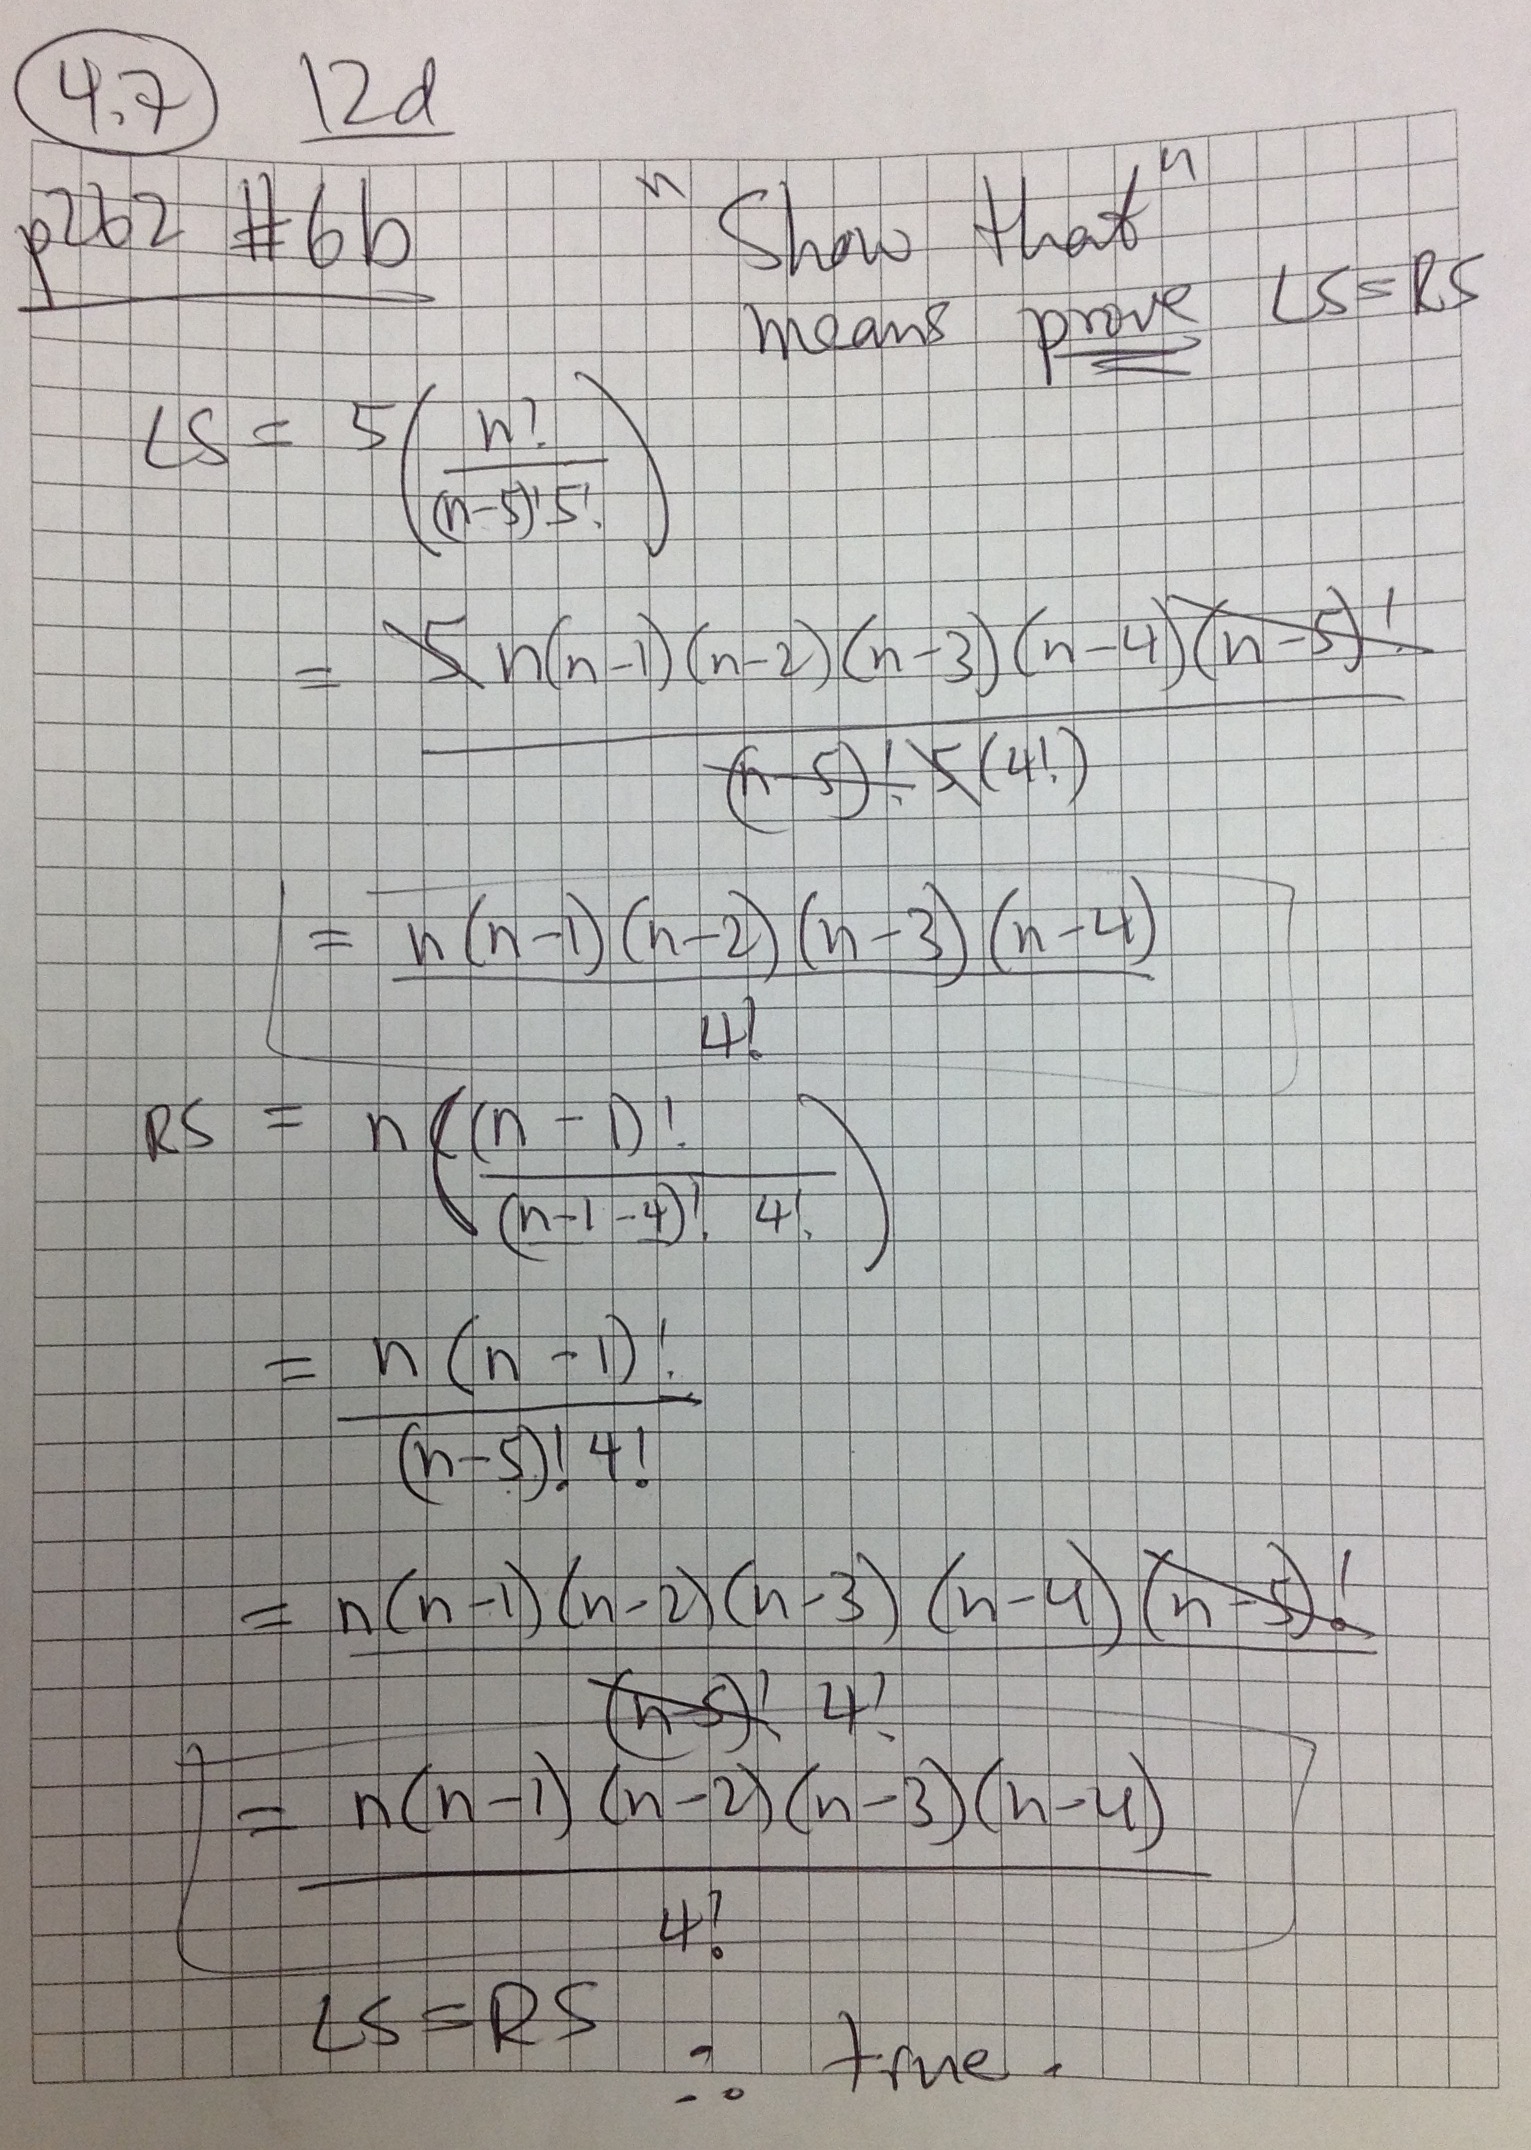 4.7 12d
p262 #6b "Show that"
means prove LS = RS
LS = 5 ( n! / (n-5)! 5! )
= 5 n(n-1)(n-2)(n-3)(n-4)(n-5)!
(n-5)! 5(4!)
= n(n-1)(n-2)(n-3)(n-4)
4!
RS = n ( (n-1)! / (n-1-4)! 4! )
= n(n-1)!
(n-5)! 4!
= n(n-1)(n-2)(n-3)(n-4)(n-5)!
(n-5)! 4!
= n(n-1)(n-2)(n-3)(n-4)
4!
LS = RS
∴ true.